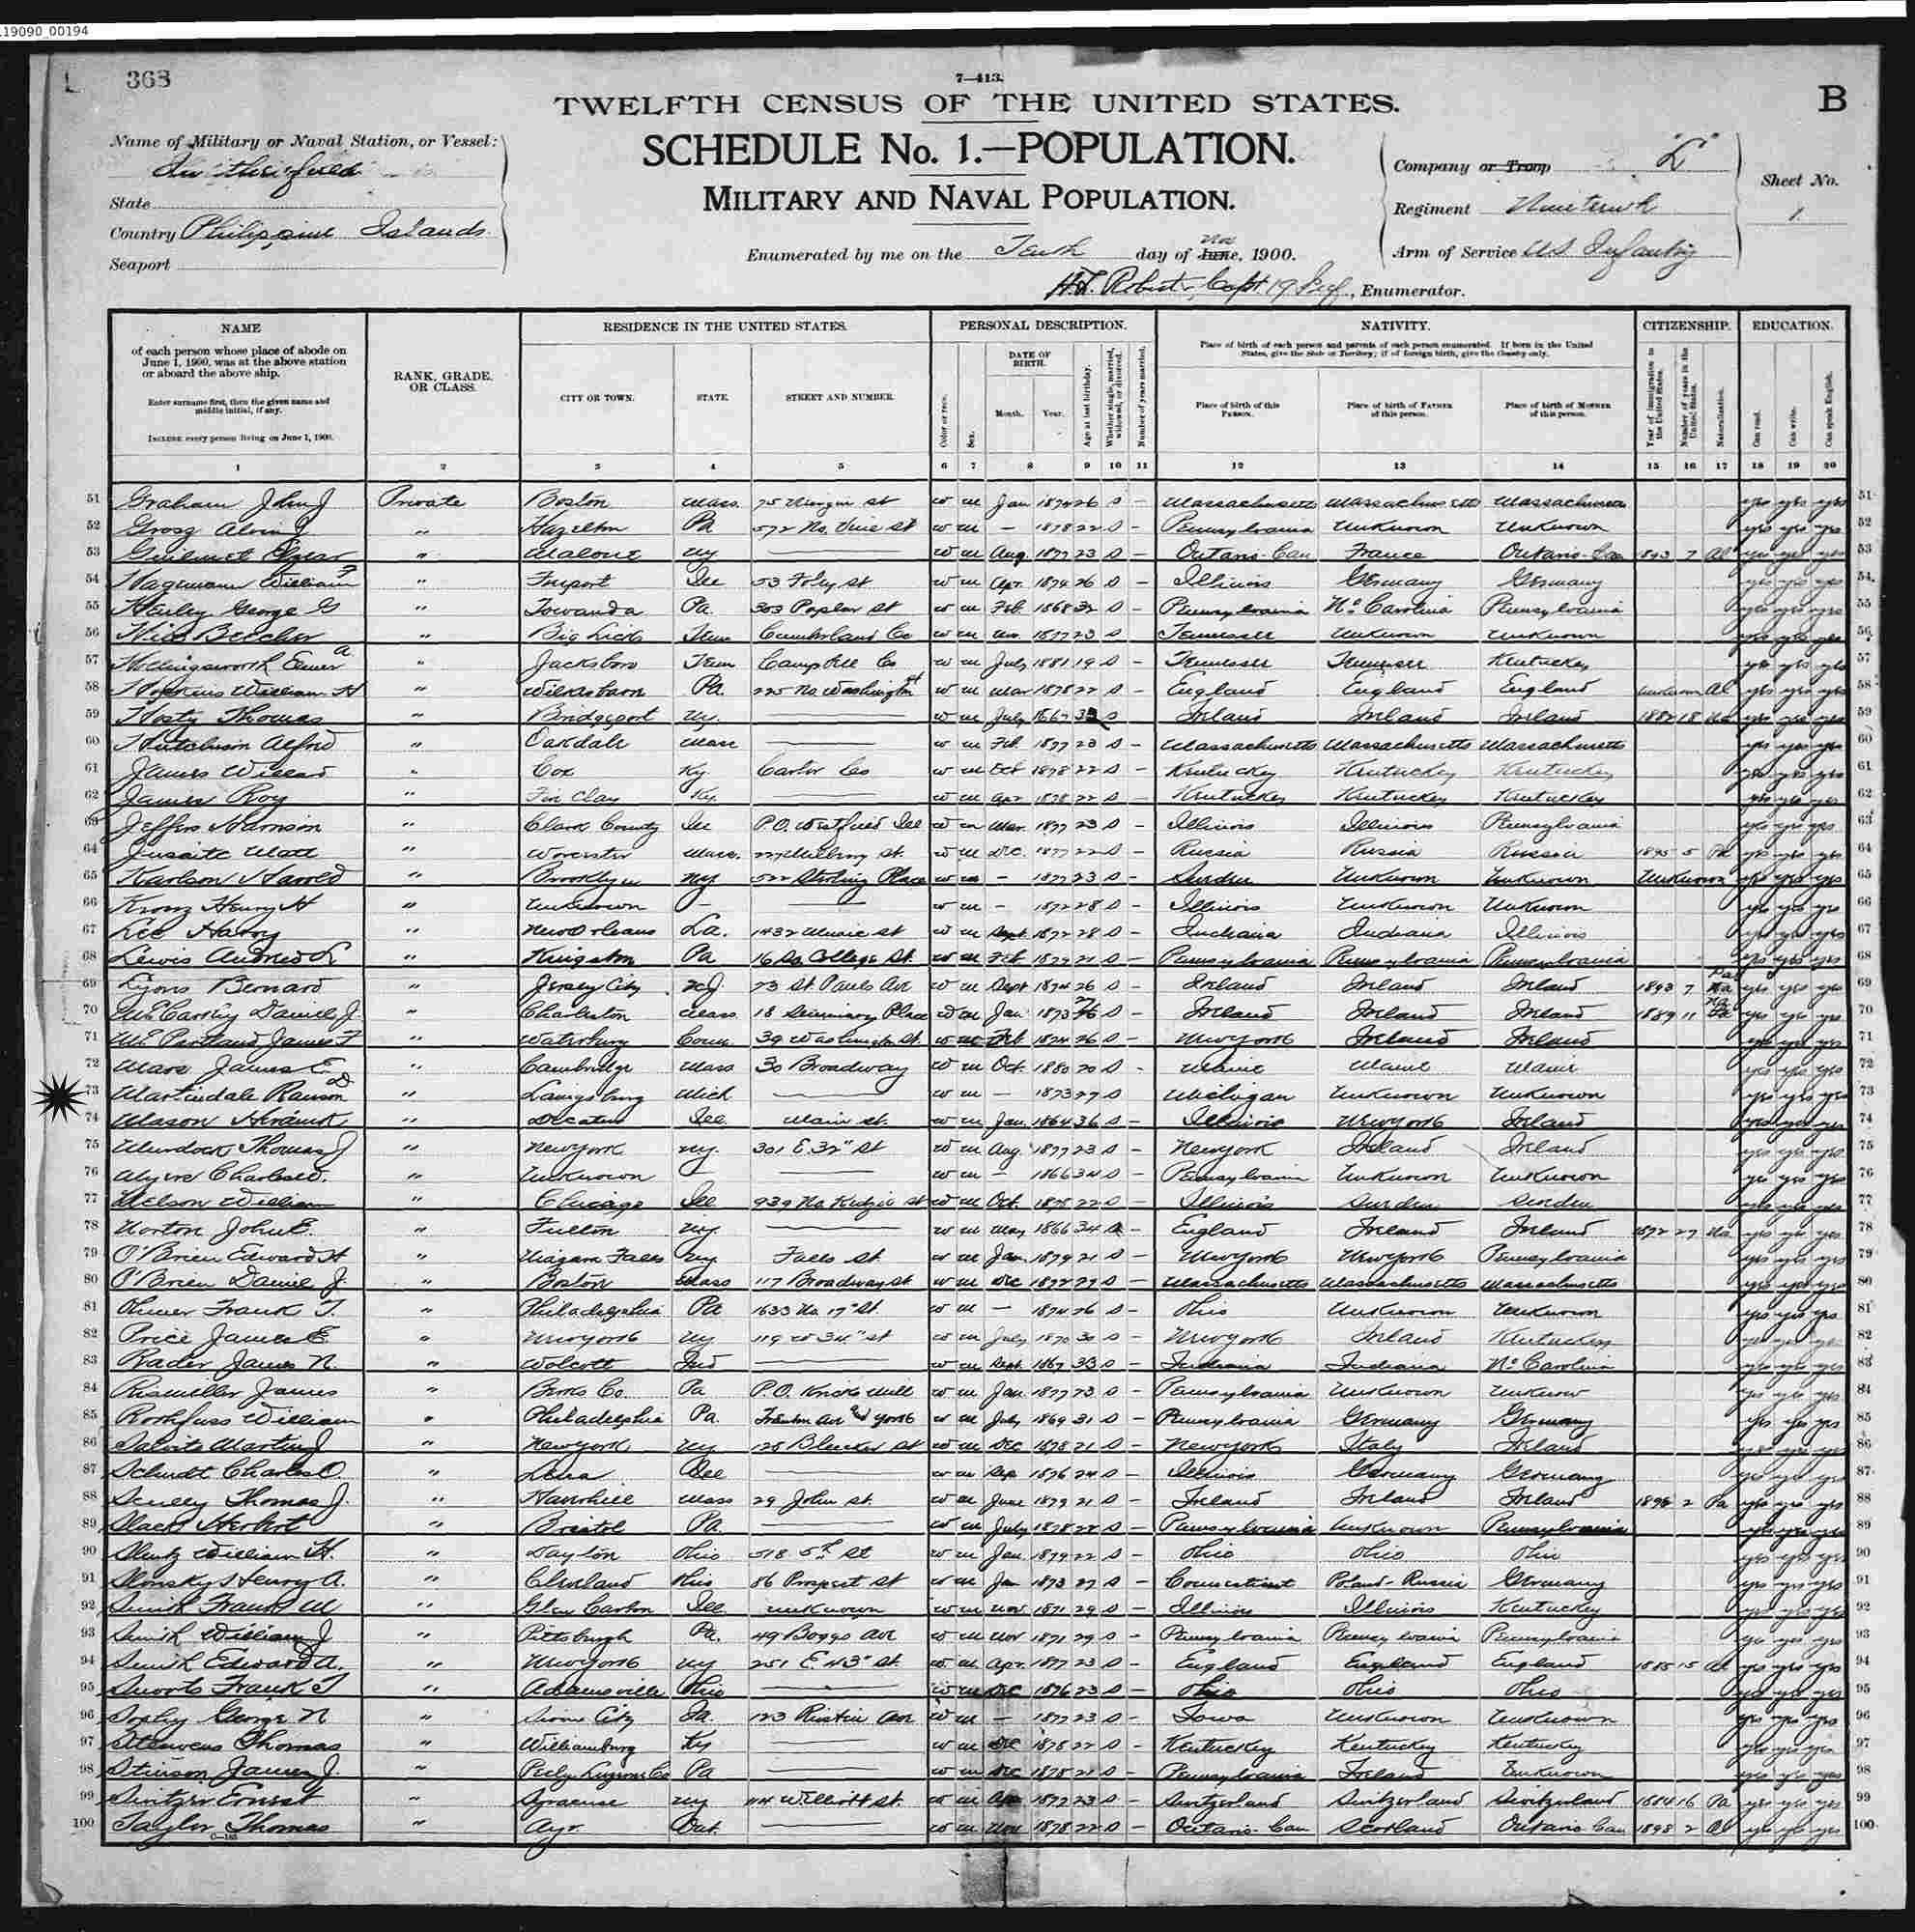 19090_00194
363
7—413.
B
TWELFTH CENSUS OF THE UNITED STATES.
SCHEDULE No. 1.—POPULATION.
MILITARY AND NAVAL POPULATION.
Name of Military or Naval Station, or Vessel:
In the field
State
Country Philippine Islands
Seaport
Enumerated by me on the Tenth day of June, Nov 1900.
Capt. 19 Inf., Enumerator.
Company or Troop "L"
Regiment Nineteenth
Arm of Service U.S. Infantry
Sheet No.
1
NAME
of each person whose place of abode on June 1, 1900, was at the above station or aboard the above ship.
Enter surname first, then the given name and middle initial, if any.
INCLUDE every person living on June 1, 1900.
RANK, GRADE, OR CLASS.
RESIDENCE IN THE UNITED STATES.
CITY OR TOWN.
STATE.
STREET AND NUMBER.
PERSONAL DESCRIPTION.
Color or race.
Sex.
DATE OF BIRTH.
Month.
Year.
Age at last birthday.
Whether single, married, widowed, or divorced.
Number of years married.
NATIVITY.
Place of birth of each person and parents of each person enumerated. If born in the United States, give the State or Territory; if of foreign birth, give the Country only.
Place of birth of this PERSON.
Place of birth of FATHER of this person.
Place of birth of MOTHER of this person.
CITIZENSHIP.
Year of immigration to the United States.
Number of years in the United States.
Naturalization.
EDUCATION.
Can read.
Can write.
Can speak English.
1 2 3 4 5 6 7 8 9 10 11 12 13 14 15 16 17 18 19 20
51 Graham John J Private Boston Mass. 75 st w m Jan 1874 26 S – Massachusetts Massachusetts Massachusetts yes yes yes 51
52 Grosz Alvin J " Hazelton Pa 572 No. Vine St w m – 1878 22 S – Pennsylvania Unknown Unknown yes yes yes 52
53 " Malone NY — w m Aug. 1877 23 S – Ontario-Can France Ontario-Can 1893 7 Al yes yes yes 53
54 Hagemann William F " Freeport Ill 53 Foley st w m Apr. 1874 26 S – Illinois Germany Germany yes yes yes 54
55 Henley George G " Towanda Pa. 303 Poplar St w m Feb. 1868 32 S – Pennsylvania No. Carolina Pennsylvania yes yes yes 55
56 Beecher " Big Lick Tenn Cumberland Co w m 1877 23 S Tennessee Unknown Unknown yes yes yes 56
57 Hollingsworth Elmer A " Jacksboro Tenn Campbell Co w m July 1881 19 S – Tennessee Tennessee Kentucky yes yes yes 57
58 Hopkins William H " Wilkesbarre Pa. 225 No Washington st w m Mar 1878 22 S – England England England Unknown Al yes yes yes 58
59 Hosty Thomas " Bridgeport NY. — w m July 1867 33 S Ireland Ireland Ireland 1882 18 Na yes yes yes 59
60 Hutchison Alfred " Oakdale Mass — w m Feb. 1877 23 S – Massachusetts Massachusetts Massachusetts yes yes yes 60
61 James Willard " Cox Ky Carter Co w m Oct 1878 22 S – Kentucky Kentucky Kentucky yes yes yes 61
62 James Roy " Clay Ky. — w m Apr 1878 22 S – Kentucky Kentucky Kentucky yes yes yes 62
63 Jeffers Harrison " Clark County Ill P.O. Westfield Ill w m Mar. 1877 23 S – Illinois Illinois Pennsylvania yes yes yes 63
64 Matt " Worcester Mass. 227 Millbury st. w m Dec. 1877 22 S – Russia Russia Russia 1895 5 Pa yes yes yes 64
65 Karlson Harold " Brooklyn NY 522 Sterling Place w m – 1877 23 S – Sweden Unknown Unknown Unknown yes yes yes 65
66 Henry H " Unknown – — w m – 1872 28 S – Illinois Unknown Unknown yes yes yes 66
67 Lee Harry " New Orleans La. 1432 Music st w m Sept. 1872 28 S – Indiana Indiana Illinois yes yes yes 67
68 Lewis Andrew L " Kingston Pa 16 So. College St. w m Feb 1879 21 S – Pennsylvania Pennsylvania Pennsylvania yes yes yes 68
69 Lyons Bernard " Jersey City N.J. 73 St Pauls Ave w m Sept 1874 26 S – Ireland Ireland Ireland 1893 7 Na Pa yes yes yes 69
70 McCarthy Daniel J. " Charleston Mass 18 Seminary Place w m Jan 1873 26 S – Ireland Ireland Ireland 1889 11 Pa Na yes yes yes 70
71 McPartland James F " Waterbury Conn. 39 Washington St. w m Feb 1874 26 S – New York Ireland Ireland yes yes yes 71
72 James E " Cambridge Mass 30 Broadway w m Oct. 1880 20 S – Maine Maine Maine yes yes yes 72
73 Martindale Ransom D " Laingsburg Mich — w m – 1873 27 S Michigan Unknown Unknown yes yes yes 73
74 Mason " Decatur Ill. Main st. w m Jan. 1864 36 S – Illinois New York Ireland yes yes yes 74
75 Murdock Thomas J " New York NY. 301 E. 32" St w m Aug 1877 23 S – New York Ireland Ireland yes yes yes 75
76 Myers Charles W. " Unknown – — w m – 1866 34 S – Pennsylvania Unknown Unknown yes yes yes 76
77 Nelson William " Chicago Ill 939 No. Kedzie st w m Oct. 1878 22 S – Illinois Sweden Sweden yes yes yes 77
78 Norton John E. " Fulton NY. — w m May 1866 34 S – England Ireland Ireland 1872 27 Na yes yes yes 78
79 O'Brien Edward H " Niagara Falls NY Falls St. w m Jan. 1879 21 S – New York New York Pennsylvania yes yes yes 79
80 O'Brien Daniel J. " Boston Mass 117 Broadway st w m Dec 1872 27 S – Massachusetts Massachusetts Massachusetts yes yes yes 80
81 Frank T. " Philadelphia Pa 1633 No 17" St. w m – 1874 26 S – Ohio Unknown Unknown yes yes yes 81
82 Price James E. " New York NY 119 W 34" st w m July 1870 30 S – New York Ireland Kentucky yes yes yes 82
83 Rader James N. " Wolcott Ind — w m Sept. 1867 33 S – Indiana Indiana No. Carolina yes yes yes 83
84 Rismiller James " Berks Co. Pa P.O. Mill w m Jan. 1877 23 S – Pennsylvania Unknown Unknow yes yes yes 84
85 Rothfuss William " Philadelphia Pa. Ave & York w m July 1869 31 S – Pennsylvania Germany Germany yes yes yes 85
86 Martin J " New York NY 125 Bleecker St w m Dec 1878 21 S – New York Italy Ireland yes yes yes 86
87 Schudt Charles O. " Lena Ill — w m Sep 1876 24 S – Illinois Germany Germany yes yes yes 87
88 Scully Thomas J. " Haverhill Mass 29 John st. w m June 1879 21 S – Ireland Ireland Ireland 1898 2 Pa yes yes yes 88
89 Slack Herbert " Bristol Pa. — w m July 1878 22 S – Pennsylvania Unknown Pennsylvania yes yes yes 89
90 Slentz William H. " Dayton Ohio 518 5th St w m Jan. 1879 22 S – Ohio Ohio Ohio yes yes yes 90
91 Slonsky Henry A. " Cleveland Ohio 86 Prospect st w m Jan 1873 27 S – Connecticut Poland-Russia Germany yes yes yes 91
92 Smith Frank M " Glen Carbon Ill unknown w m Nov 1871 29 S – Illinois Illinois Kentucky yes yes yes 92
93 Smith William J " Pittsburgh Pa. 49 Boggs Ave w m Nov 1871 29 S – Pennsylvania Pennsylvania Pennsylvania yes yes yes 93
94 Smith Edward A. " New York NY 251 E. 43" st. w m Apr. 1877 23 S – England England England 1885 15 Al yes yes yes 94
95 Frank T " Adamsville Ohio — w m Dec 1876 23 S – Ohio Ohio Ohio yes yes yes 95
96 George N " Sioux City Ia. 123 Ave w m – 1877 23 S – Iowa Unknown Unknown yes yes yes 96
97 Thomas " Williamsburg Ky — w m Dec 1878 22 S – Kentucky Kentucky Kentucky yes yes yes 97
98 Stinson James J. " Luzerne Co Pa — w m Dec 1878 21 S – Pennsylvania Ireland Unknown yes yes yes 98
99 Ernest " Syracuse NY st. w m 1877 23 S – Switzerland Switzerland Switzerland 1884 16 Pa yes yes yes 99
100 Taylor Thomas " Ayr. Ont. — w m Nov 1878 22 S – Ontario-Can Scotland Ontario-Can 1898 2 Al yes yes yes 100